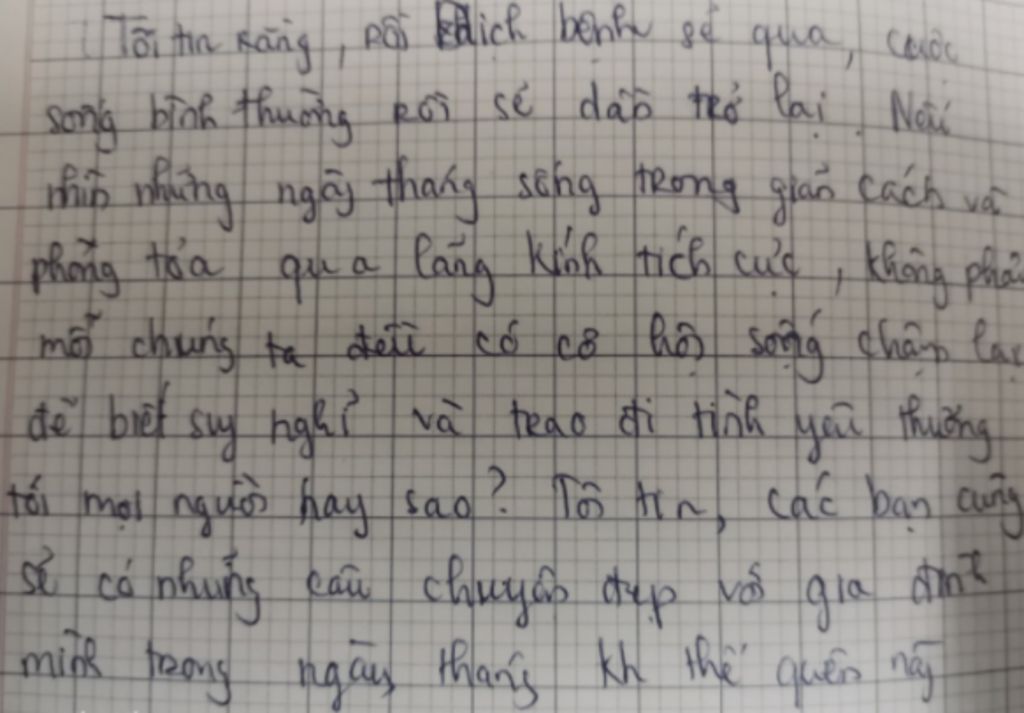 Tôi tin rằng, rồi dịch bệnh sẽ qua, cuộc
sống bình thường rồi sẽ dần trở lại. Nếu
nhìn những ngày tháng sống trong giãn cách và
phong tỏa qua lăng kính tích cực, không phải
mỗi chúng ta đều có cơ hội sống chậm lại
để biết suy nghĩ và trao đi tình yêu thương
tới mọi người hay sao? Tôi tin, các bạn cũng
sẽ có những câu chuyện đẹp với gia đình
mình trong ngày tháng kh thể quên này